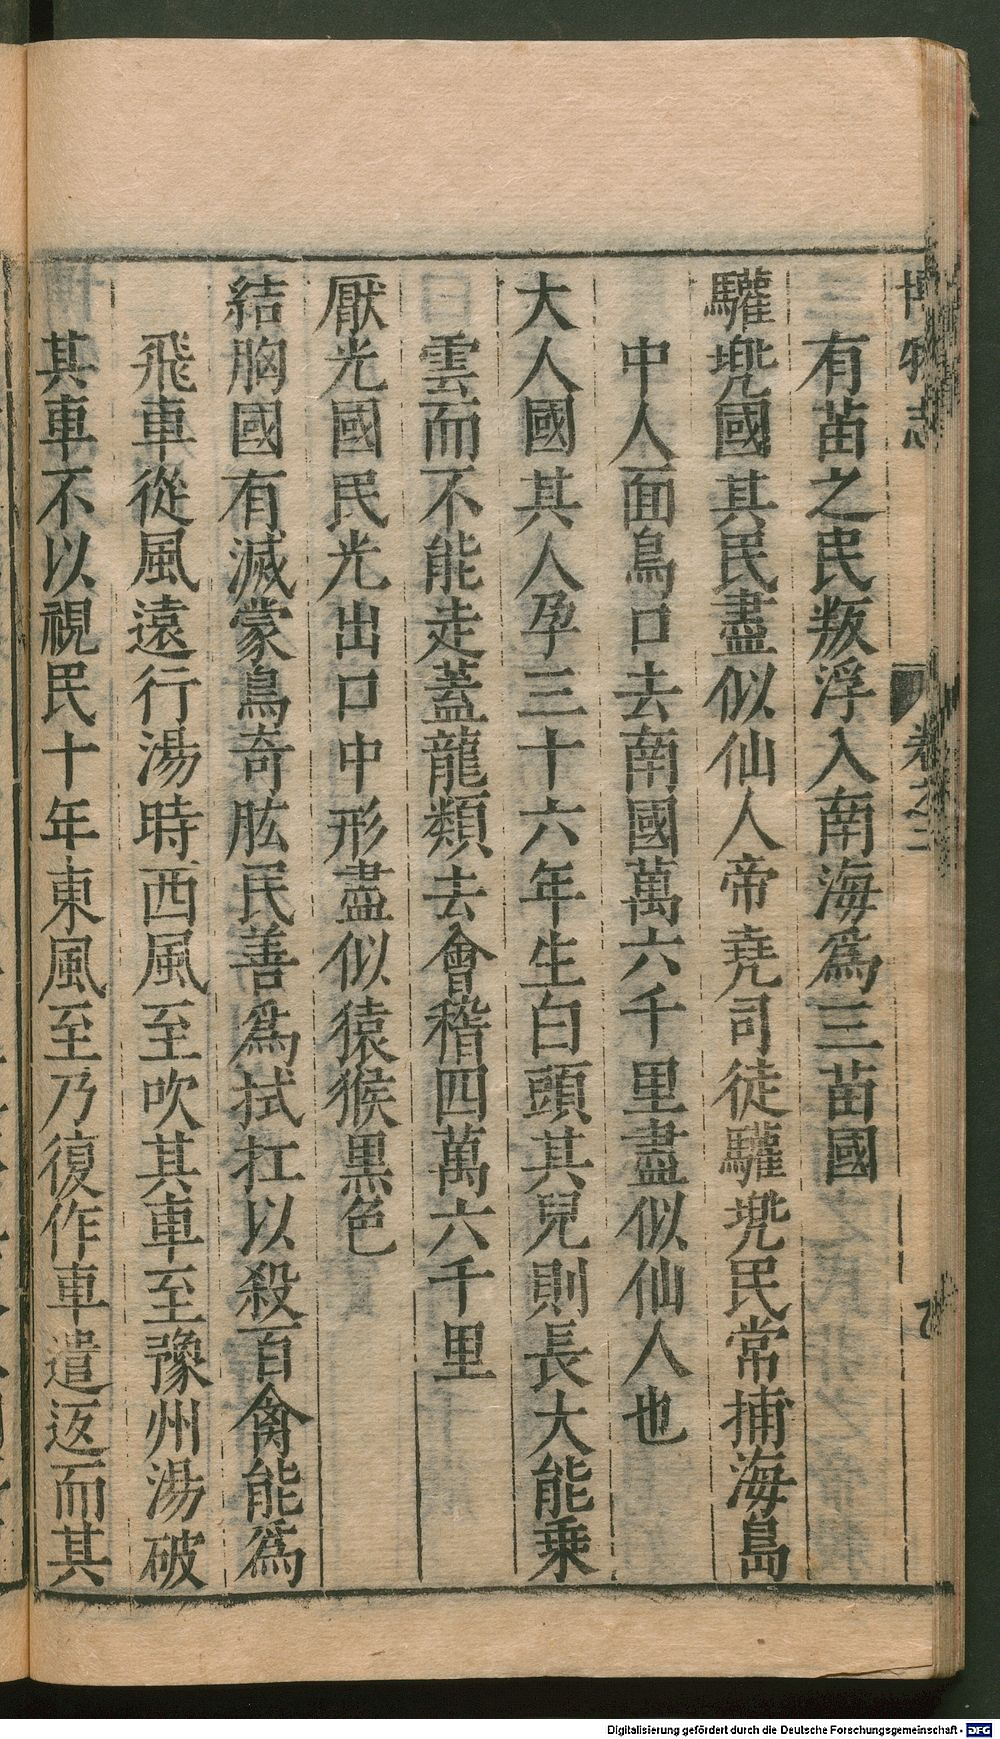 博物志 卷之二
有苗之民叛浮入南海為三苗國
驩兠國其民盡似仙人帝堯司徒驩兠民常捕海島
中人面鳥口去南國萬六千里盡似仙人也
大人國其人孕三十六年生白頭其兒則長大能乗
雲而不能走蓋龍類去會稽四萬六千里
厭光國民光出口中形盡似猿猴黒色
結胸國有滅蒙鳥奇肱民善為拭扛以殺百禽能為
飛車從風遠行湯時西風至吹其車至豫州湯破
其車不以視民十年東風至乃復作車遣返而其
Digitalisierung gefördert durch die Deutsche Forschungsgemeinschaft - DFG